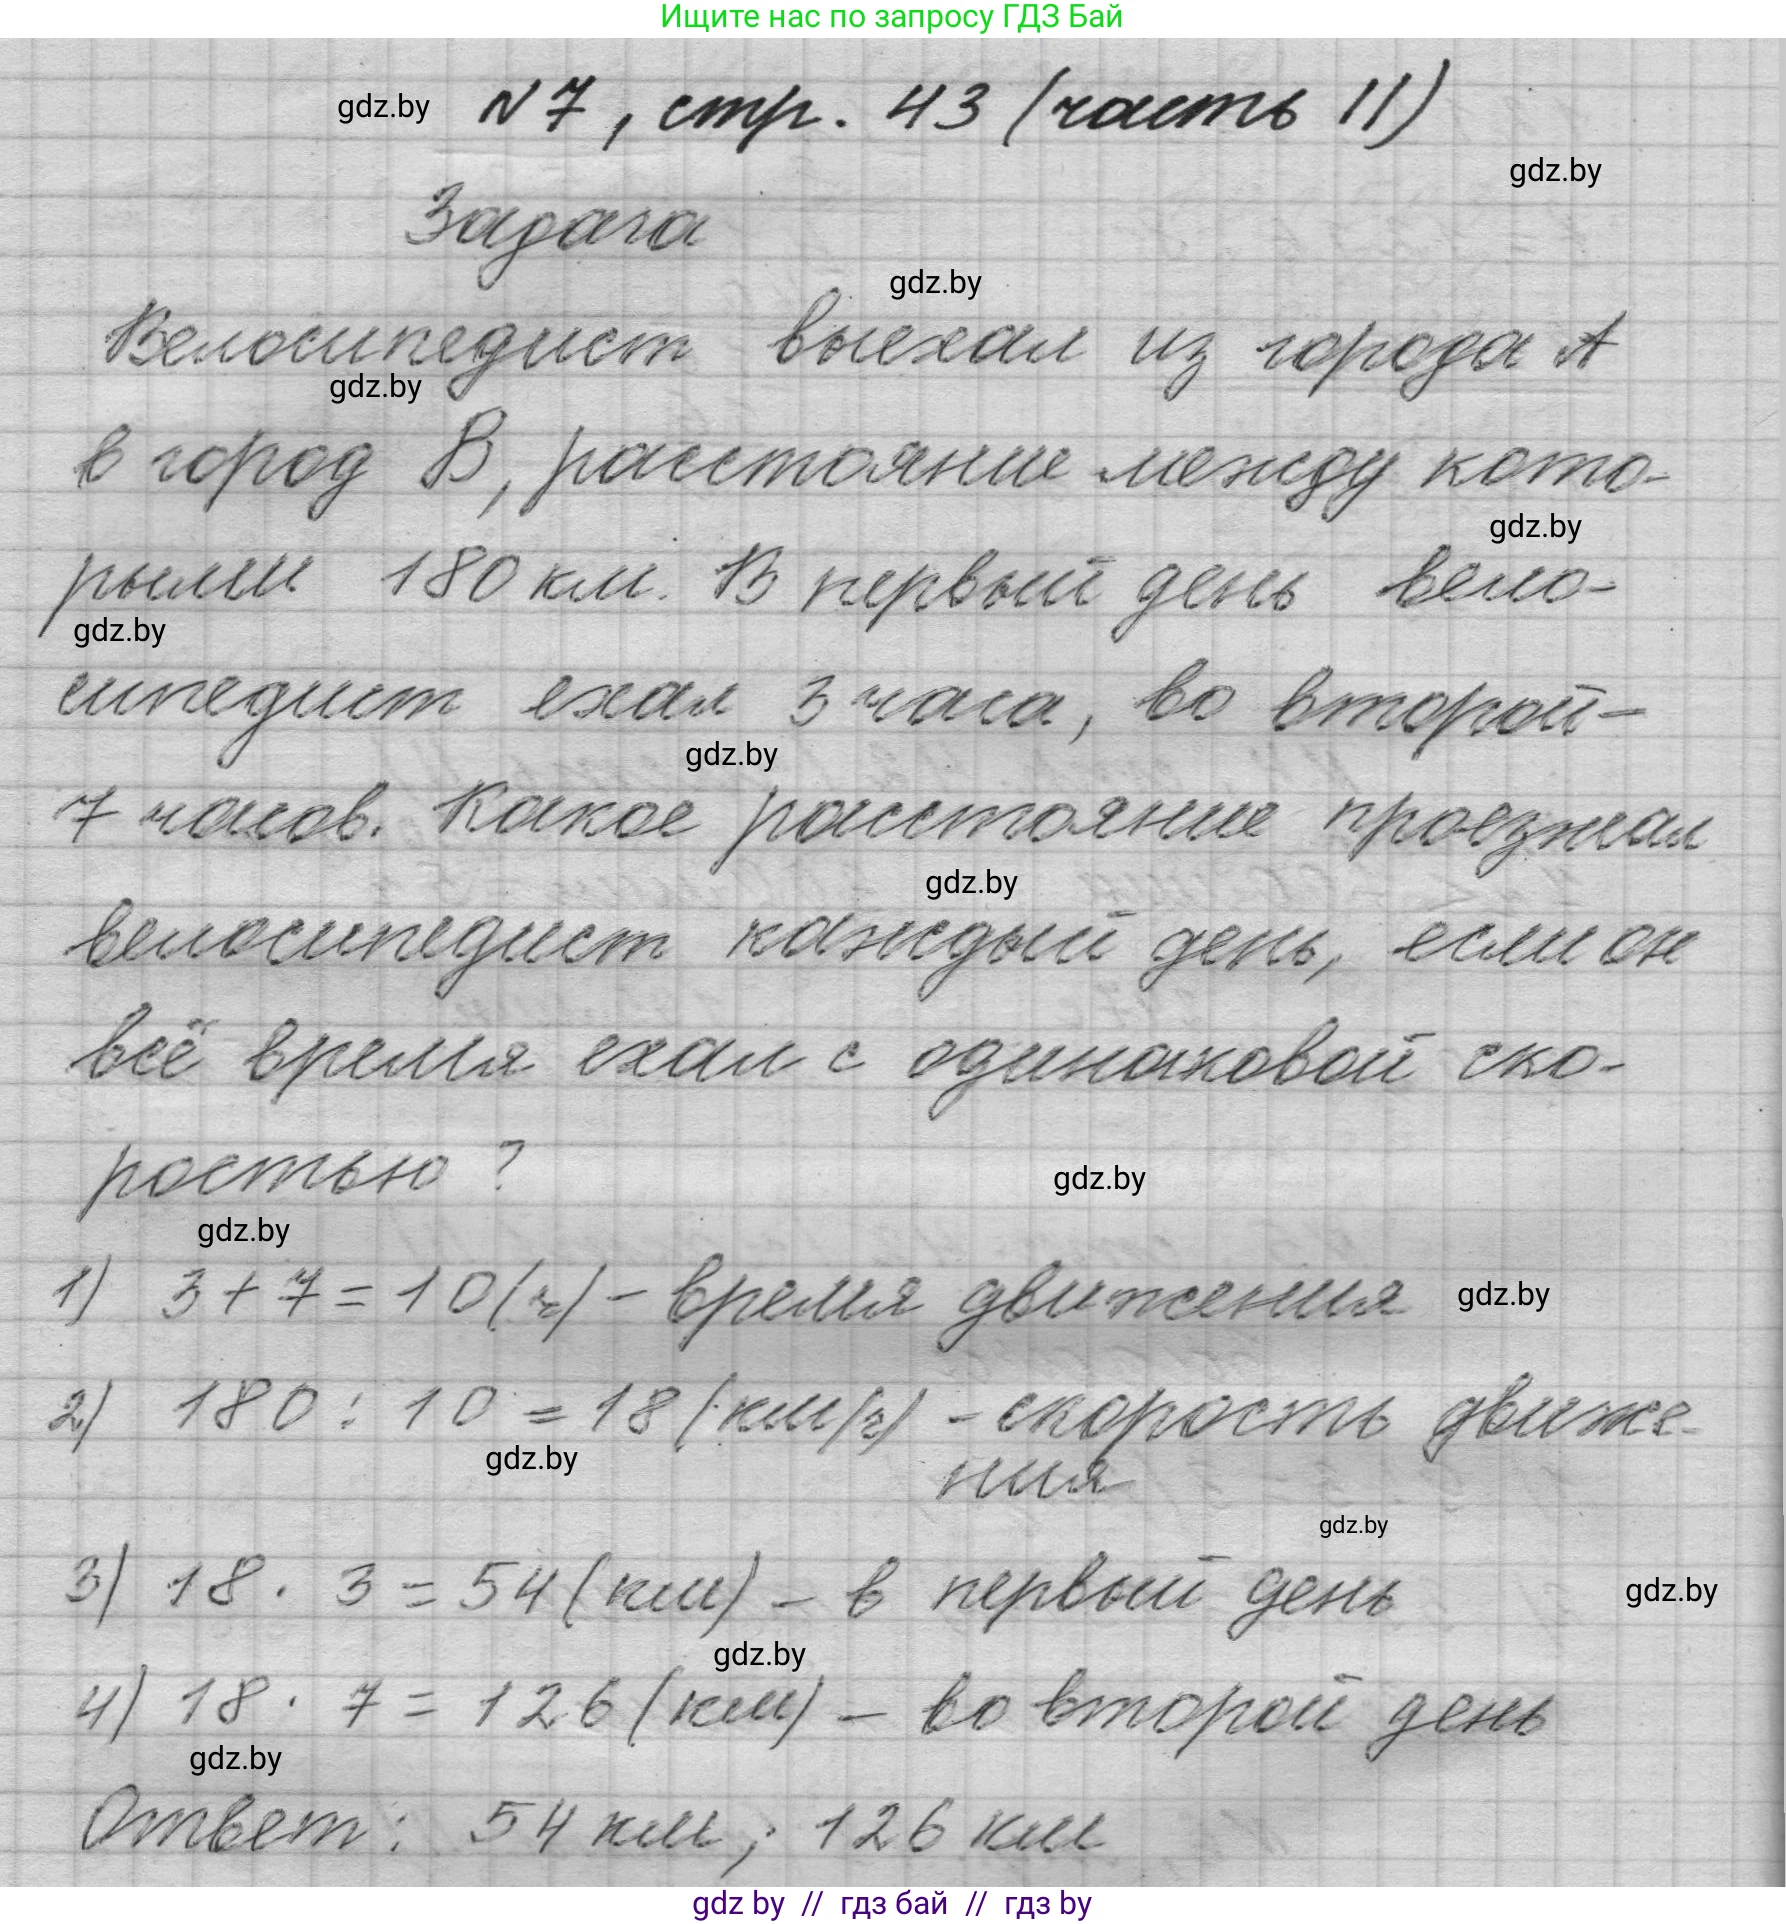 Ищите нас по запросу ГДЗ Бай
gdz.by N7, стр. 43 (часть II)
gdz.by
Задача
gdz.by
Велосипедист выехал из города А
gdz.by
в город В, расстояние между кото-
gdz.by
рыми 180 км. В первый день вело-
gdz.by
сипедист ехал 3 часа, во второй –
gdz.by
7 часов. Какое расстояние проезжал
gdz.by
велосипедист каждый день, если он
всё время ехал с одинаковой ско-
ростью?
gdz.by
gdz.by
1) 3 + 7 = 10 (ч) – время движения gdz.by
2) 180 : 10 = 18 (км/ч) – скорость движе-
gdz.by
ния
gdz.by
3) 18 · 3 = 54 (км) – в первый день gdz.by
gdz.by
4) 18 · 7 = 126 (км) – во второй день
gdz.by
Ответ: 54 км; 126 км
gdz by // гдз бай // гдз by